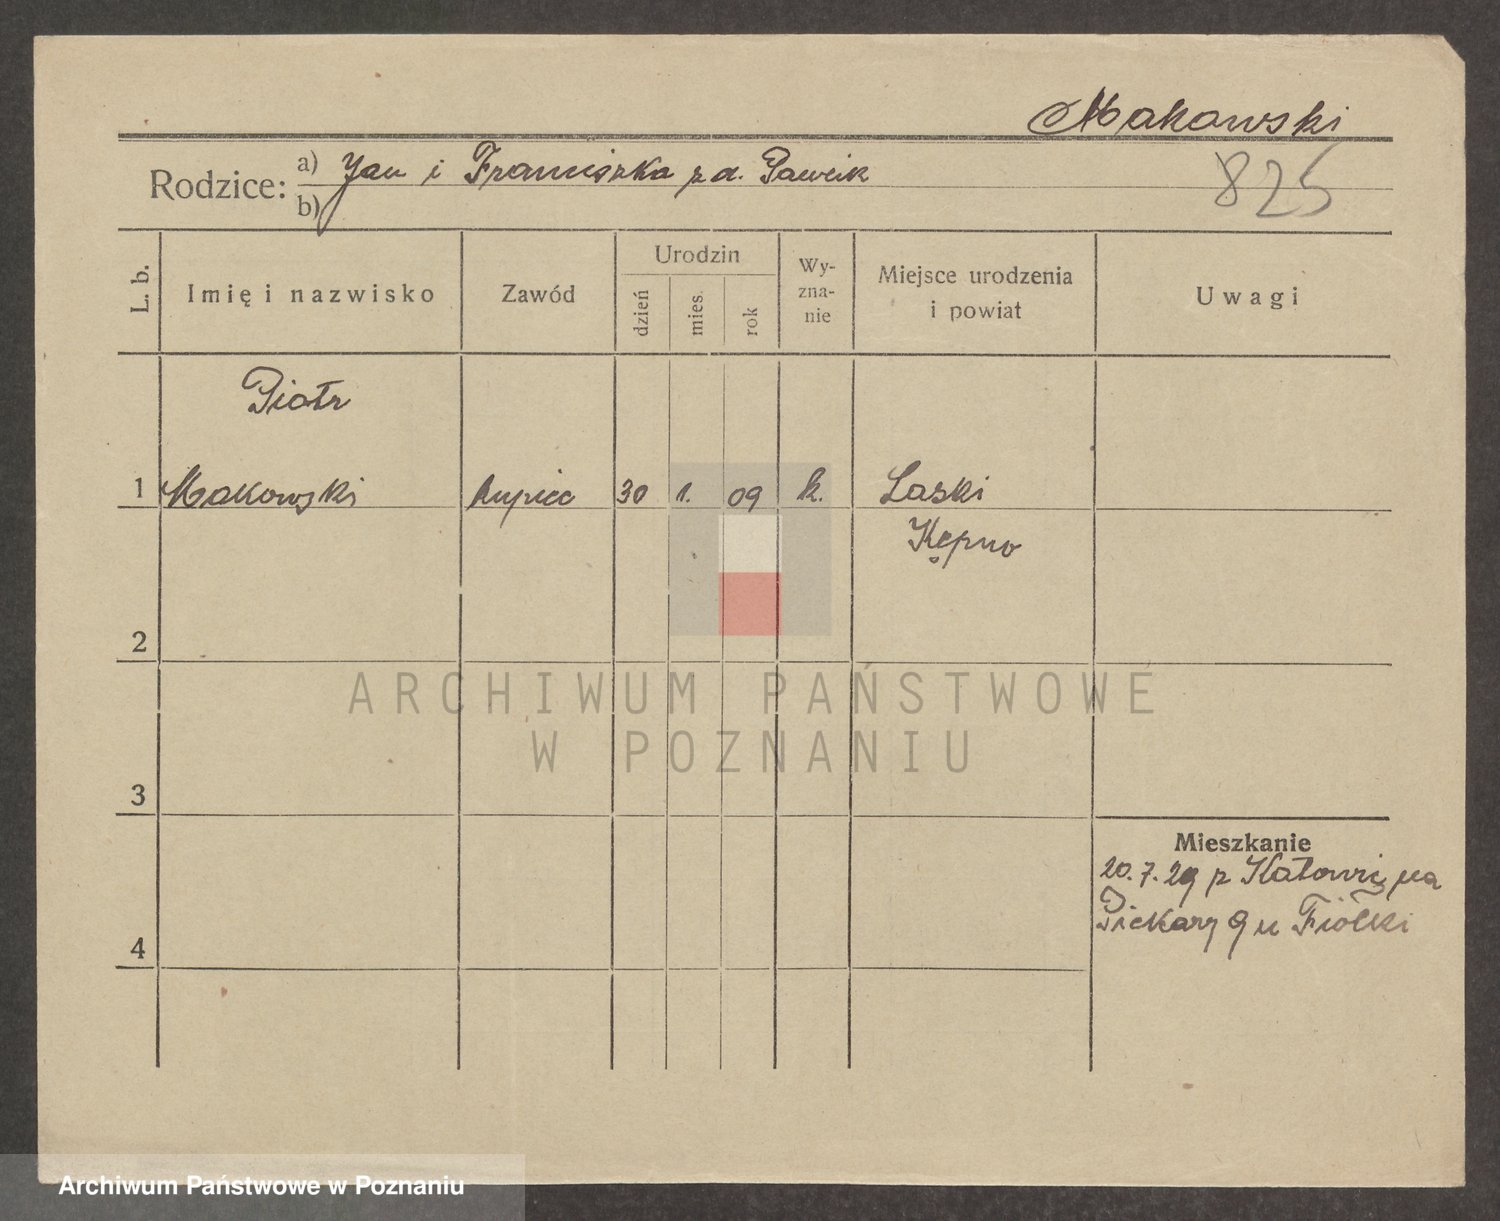 Makowski
Rodzice: a) Jan i Franciszka z d. Pawcik
b)
825
L. b.
Imię i nazwisko
Zawód
Urodzin
dzień
mies.
rok
Wy-
zna-
nie
Miejsce urodzenia
i powiat
Uwagi
Piotr
1 Makowski kupiec 30 1. 09 k. Laski
Kępno
2
ARCHIWUM PAŃSTWOWE
W POZNANIU
3
Mieszkanie
20.7.29 z Katowic na
Piekary 9 u Fiołki
4
Archiwum Państwowe w Poznaniu